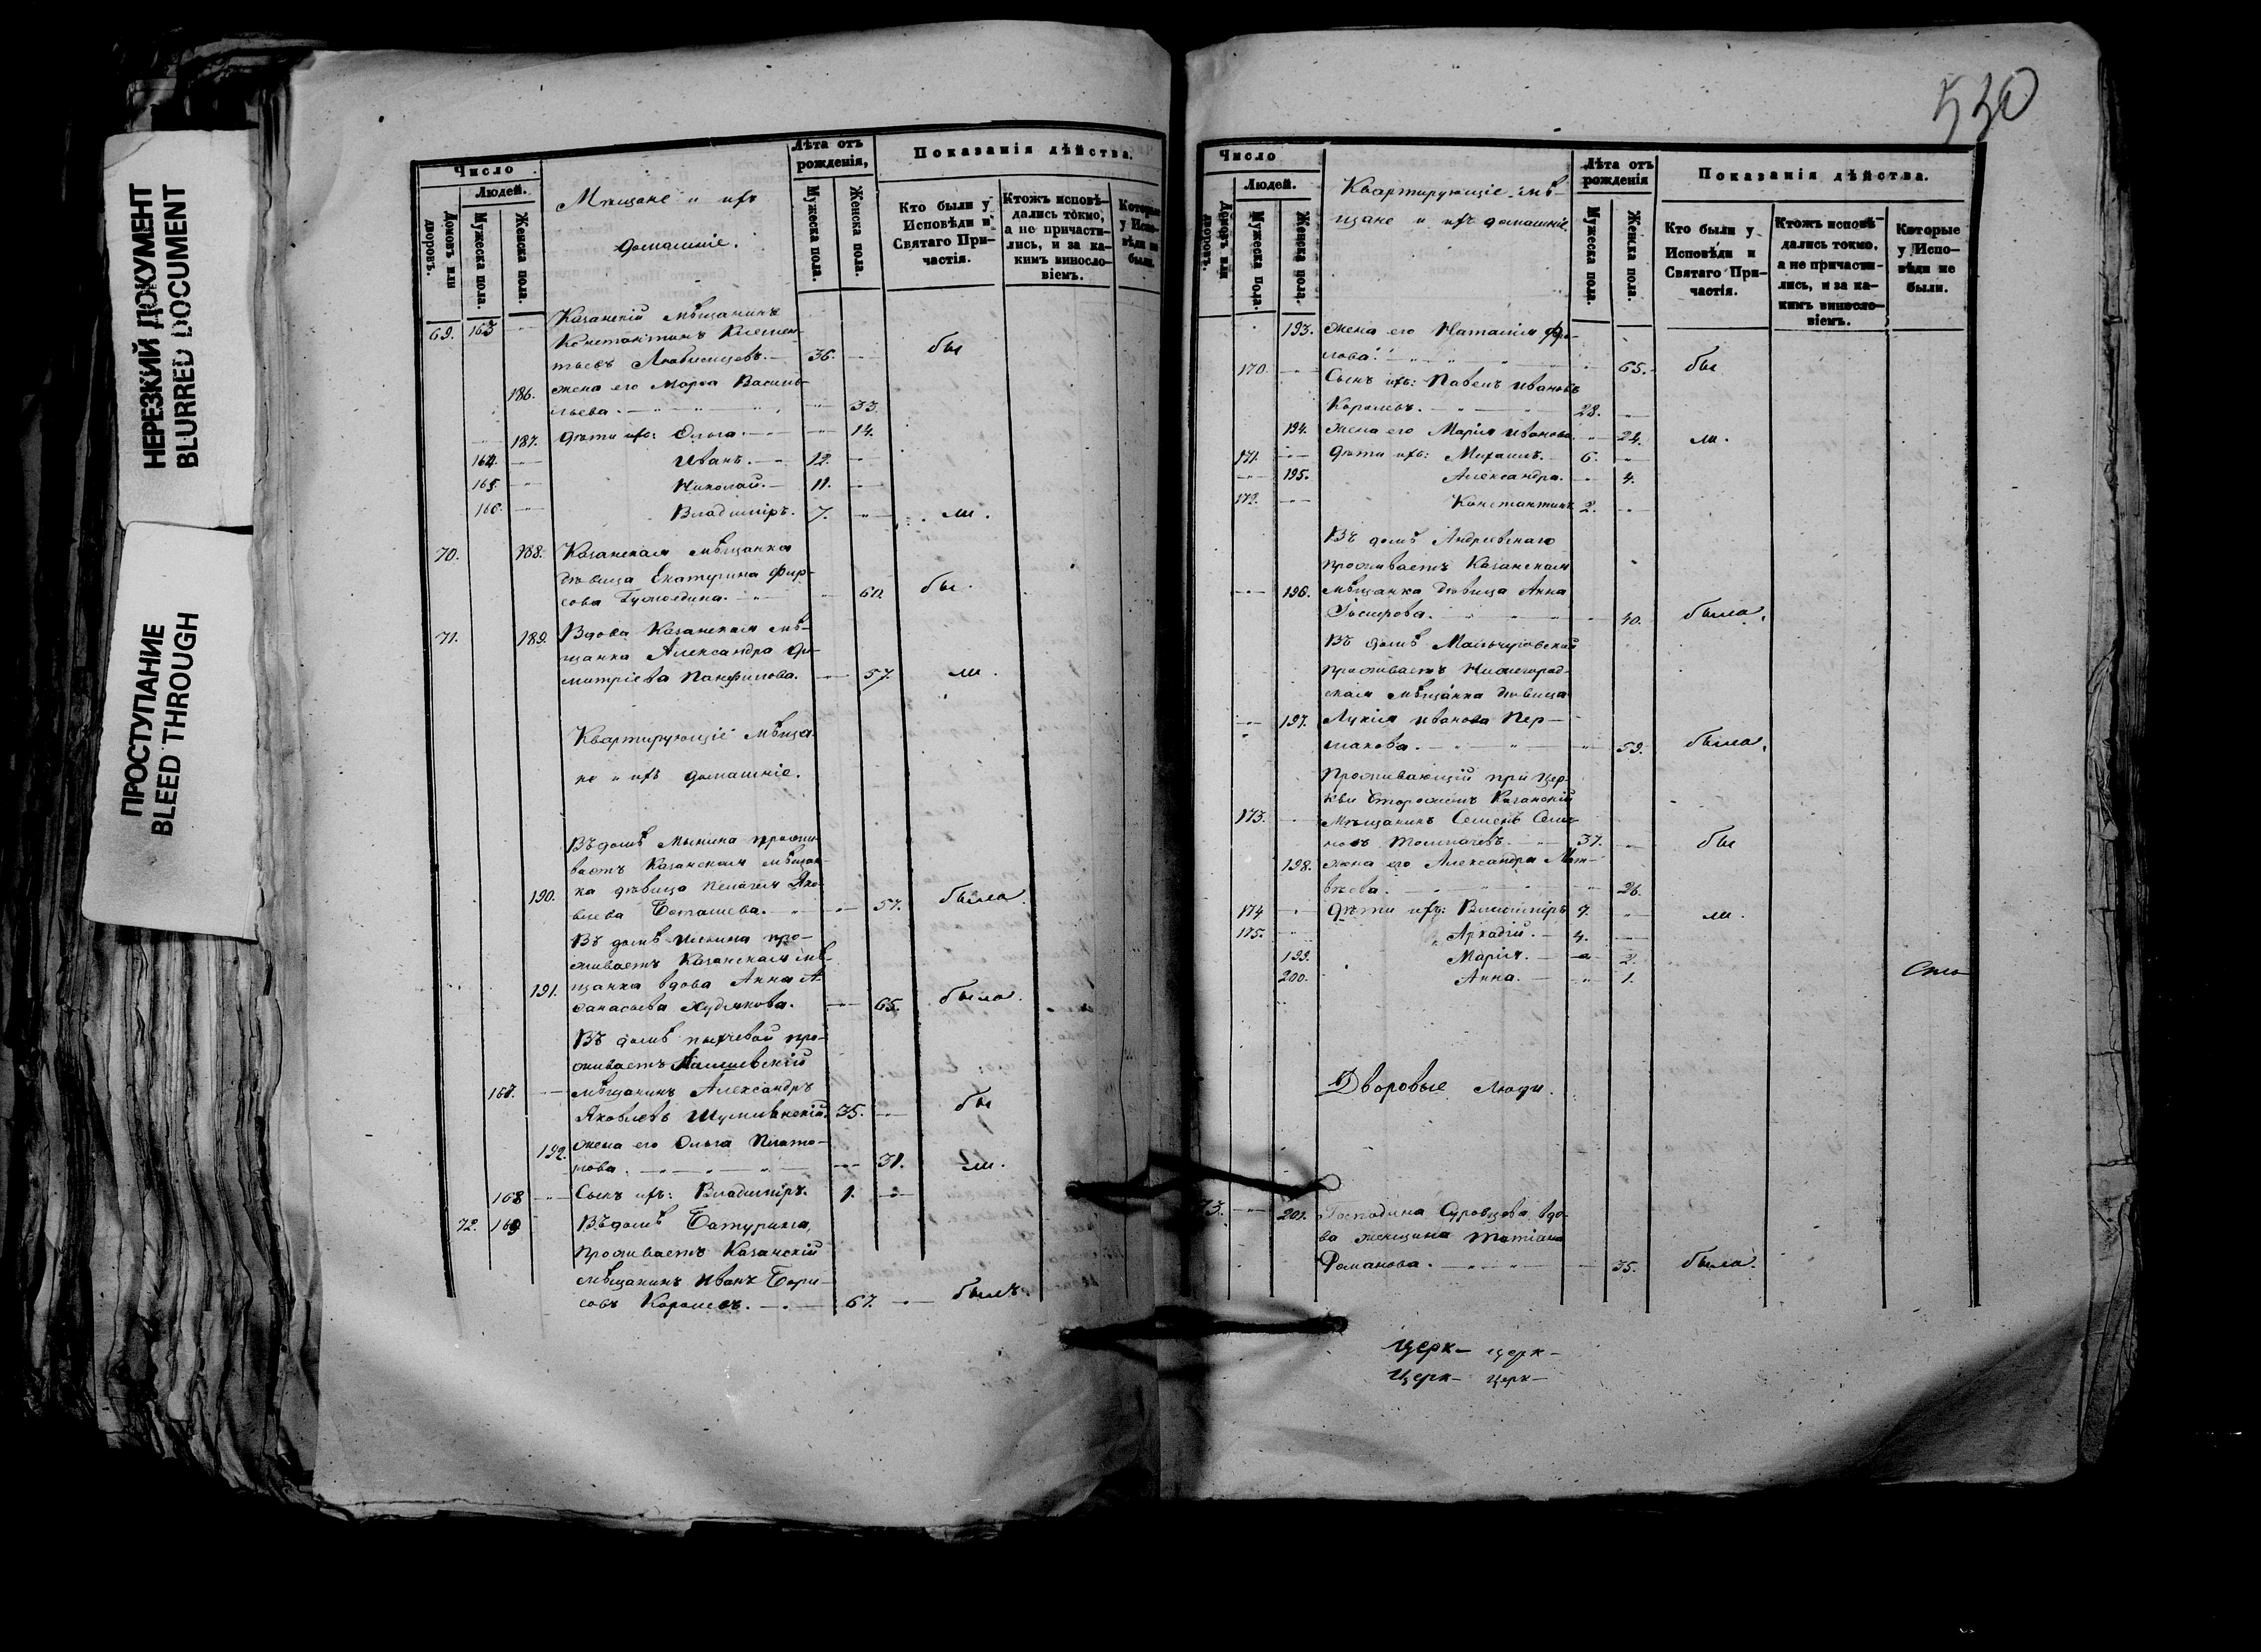 НЕРЕЗКИЙ ДОКУМЕНТ
BLURRED DOCUMENT
ПРОСТУПАНИЕ
BLEED THROUGH
Число
Людей.
Домовъ или дворовъ.
Мужеска пола.
Женска пола.
Мѣщане и ихъ
домашніе.
Лѣта отъ рожденія,
Мужеска пола.
Женска пола.
Показанія дѣйства.
Кто были у Исповѣди и Святаго Причастія.
Ктожъ исповѣ-
дались токмо,
а не причасти-
лись, и за ка-
кимъ винословіемъ.
Которые у Исповѣди не были.
69. 163 Казанскій мѣщанинъ
Константинъ Клемен-
тьевъ Любимцевъ. 36. бы
186. жена его Марѳа Василь-
ьева. 33.
187. Дѣти ихъ: Ольга. 14.
164. Иванъ. 12.
165. Николай. 11.
166. Владиміръ. 7. ли.
70. 188. Казанская мѣщанка
дѣвица Екатерина Фир-
сова 60. бы.
71. 189. Вдова Казанская мѣ-
щанка Александра Ди-
митріева Панфилова. 57. ли.
Квартирующіе мѣща-
не и ихъ домашніе.
Въ домѣ Мыкина прожи-
ваетъ Казанская мѣщан-
190. ка дѣвица Пелагея Яко-
влева Боталиева. 57. была
Въ домѣ Ильина про-
живаетъ Казанская мѣ-
191. щанка вдова Анна А-
ѳанасьева Худякова. 65. была.
Въ домѣ Пыхчевой про-
живаетъ
167. мѣщанинъ Александръ
Яковлевъ 35. бы
192. жена его Ольга Плато-
нова. 31. ли.
168 Сынъ ихъ: Владиміръ. 1.
72. 169 Въ домѣ Батурина
проживаетъ Казанскій
мѣщанинъ Иванъ Бори-
совъ Королевъ. 67. былъ.
530
Число
Людей.
Домовъ или дворовъ.
Мужеска пола.
Женска пола.
Квартирующіе мѣ-
щане и ихъ домашніе.
Лѣта отъ рожденія
Мужеска пола.
Женска пола.
Показанія дѣйства.
Кто были у Исповѣди и Святаго Причастія.
Ктожъ исповѣ-
дались токмо,
а не причасти-
лись, и за ка-
кимъ винословіемъ.
Которые у Исповѣди не были.
193. жена его Наталія Фро-
лова. 65. бы
170. Сынъ ихъ: Павелъ Ивановъ
Королевъ. 28.
194. жена его Марія Иванова. 24. ли.
171. Дѣти ихъ: Михаилъ. 6.
195. Александра. 4.
172. Константинъ 2.
Въ домѣ Андреевскаго
проживаетъ Казанская
196. мѣщанка дѣвица Анна
Іосифова. 40. была.
Въ домѣ
проживаетъ Нижегород-
ская мѣщанка дѣвица
197. Лукія Иванова Пер-
шакова. 59. была.
Проживающій при Цер-
кви Сторожемъ Казанскій
173. Мѣщанинъ Семенъ Семе-
новъ Толмачевъ. 37. бы
198. жена его Александра Мат-
вѣева. 26.
174 Дѣти ихъ: Владиміръ 7. ли.
175. Аркадій. 4.
199. Марія. 2.
200. Анна. 1.
Дворовые люди.
73. 201. Господина Суровцева вдо-
ва женщина Татіана
Романова. 35. была.
Церк- церк-
Церк- церк-